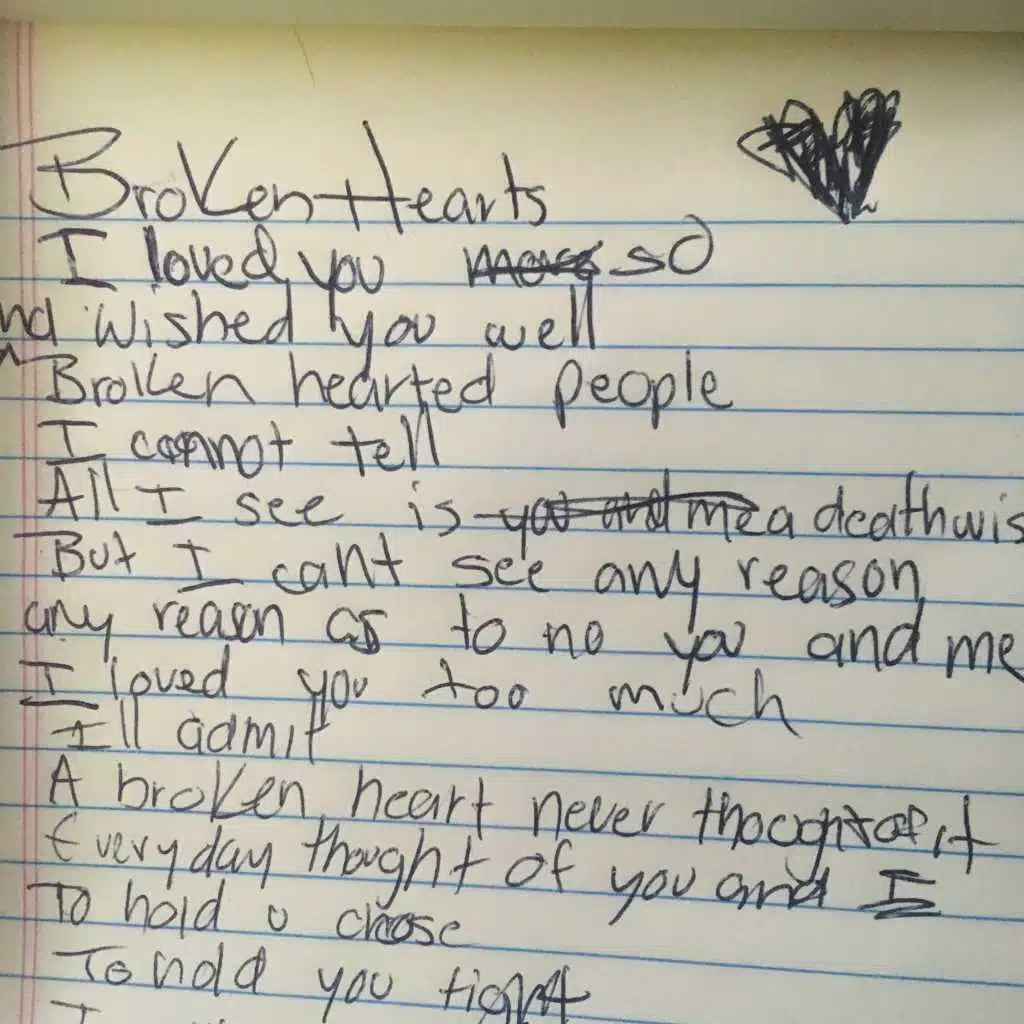 Broken Hearts
I loved you so
nd wished you well
Broken hearted people
I cannot tell
All I see is a deathwis
But I cant see any reason
any reason as to no you and me
I loved you too much
Ill admit
A broken heart never thought of it
Everyday thought of you and I
To hold u close
To hold you tight
I